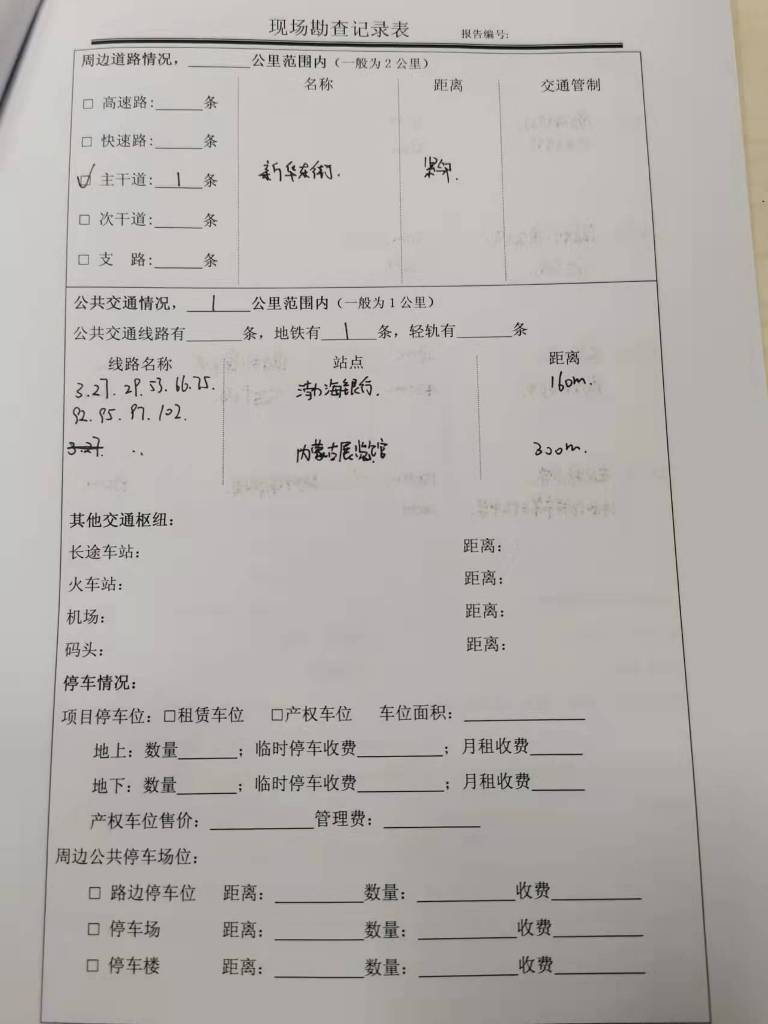 现场勘查记录表 报告编号:
周边道路情况，______公里范围内（一般为2公里）
名称 距离 交通管制
□ 高速路:_____条
□ 快速路:_____条
☑ 主干道: 1 条 新华东街. 紧邻.
□ 次干道:_____条
□ 支 路:_____条
公共交通情况， 1 公里范围内（一般为1公里）
公共交通线路有______条，地铁有 1 条，轻轨有______条
线路名称 站点 距离
3.27.29.53.66.75. 渤海银行. 160m.
92.95.97.102.
3.27. 内蒙古展览馆 300m.
其他交通枢纽：
长途车站： 距离：
火车站： 距离：
机场： 距离：
码头： 距离：
停车情况：
项目停车位：□租赁车位 □产权车位 车位面积：____________
地上：数量______；临时停车收费________；月租收费_____
地下：数量______；临时停车收费________；月租收费_____
产权车位售价：__________管理费：_________
周边公共停车场位：
□ 路边停车位 距离：________数量：_________收费________
□ 停车场 距离：________数量：_________收费________
□ 停车楼 距离：________数量：_________收费________